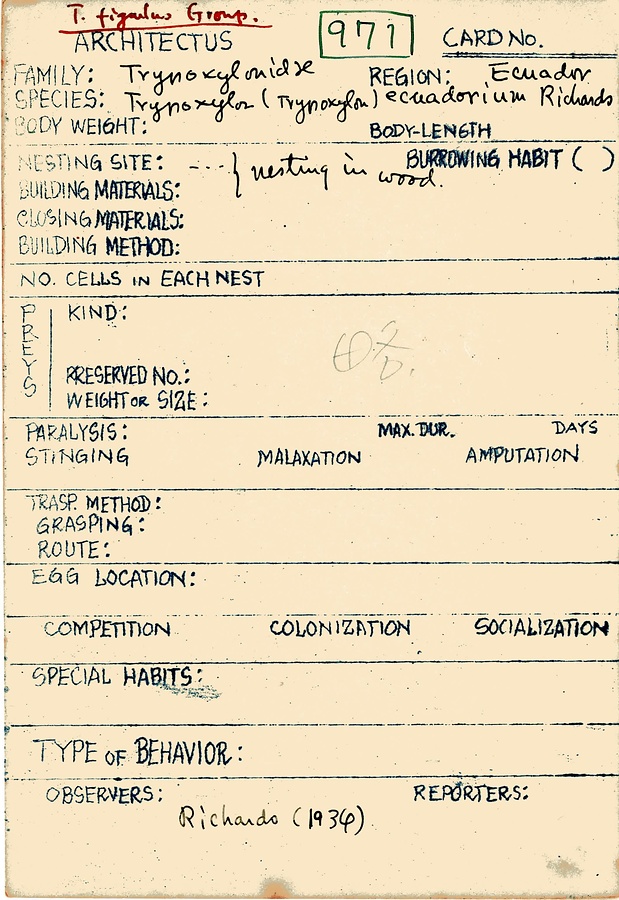 T. figulus Group.
ARCHITECTUS 971 CARD NO.
FAMILY: Trypoxylonidae REGION: Ecuador
SPECIES: Trypoxylon (Trypoxylon) ecuadorium Richards
BODY WEIGHT: BODY-LENGTH
NESTING SITE: --- { nesting in wood. BURROWING HABIT ( )
BUILDING MATERIALS:
CLOSING MATERIALS:
BUILDING METHOD:
NO. CELLS IN EACH NEST
PREYS
KIND:
PRESERVED NO.:
WEIGHT OR SIZE:
PARALYSIS: MAX. DUR. DAYS
STINGING MALAXATION AMPUTATION
TRASP. METHOD:
GRASPING:
ROUTE:
EGG LOCATION:
COMPETITION COLONIZATION SOCIALIZATION
SPECIAL HABITS:
TYPE OF BEHAVIOR:
OBSERVERS: REPORTERS:
Richards (1934)